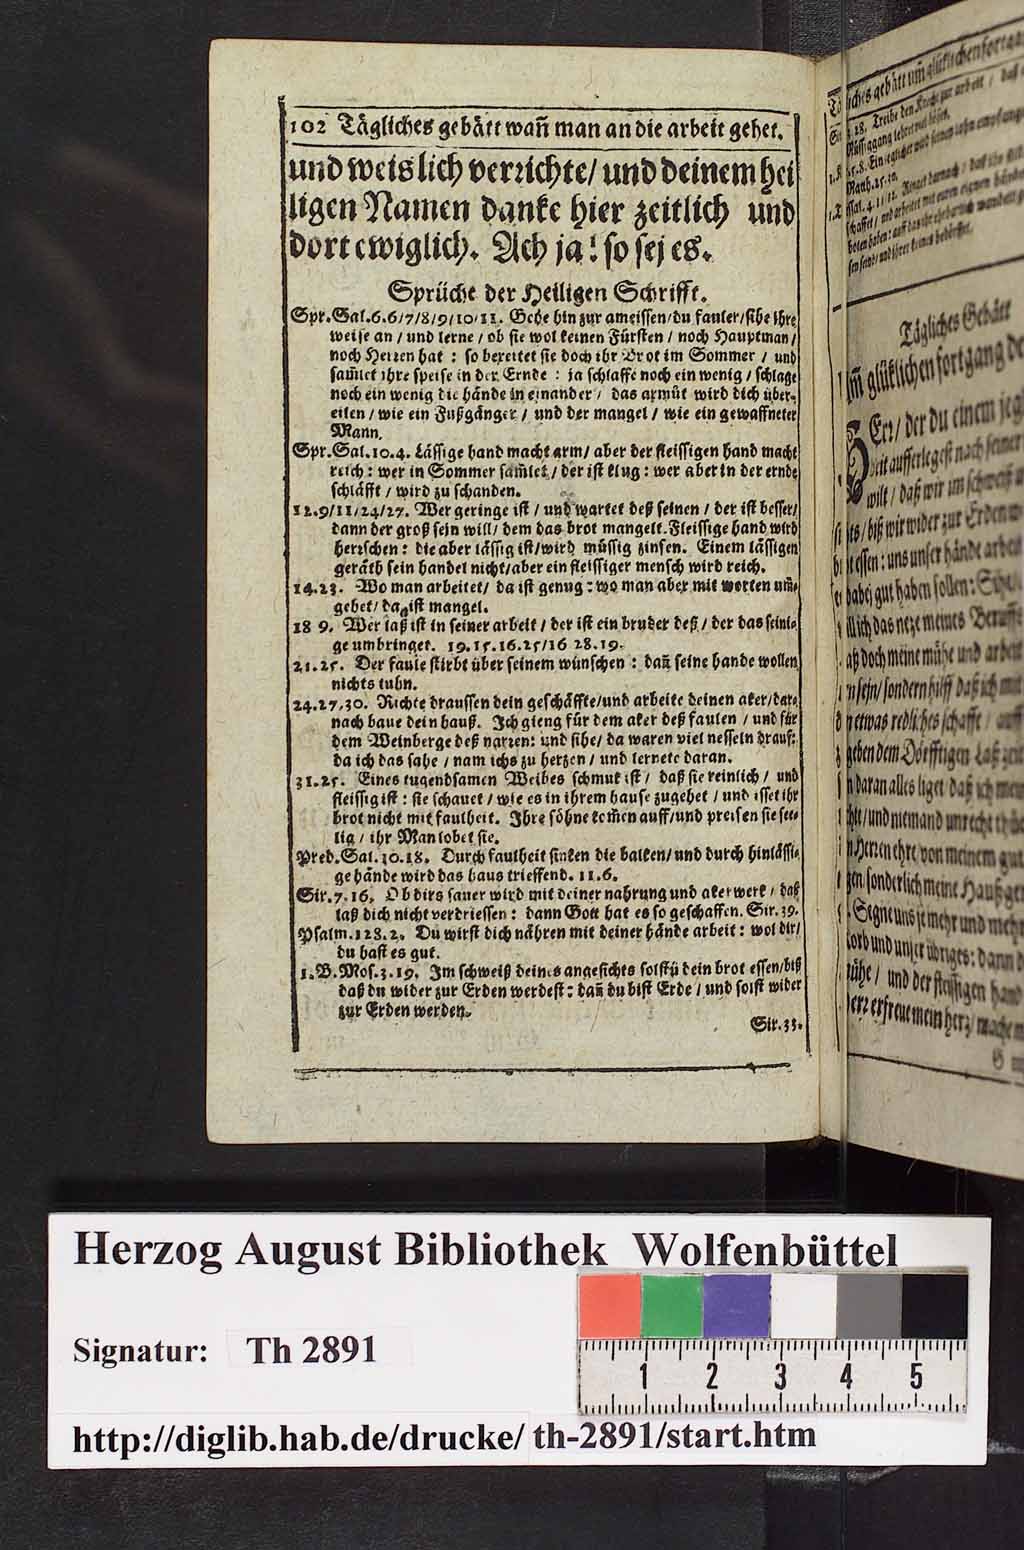 102 Tägliches gebätt wañ man an die arbeit gehet.
und weislich verrichte/ und deinem hei
ligen Namen danke hier zeitlich und
dort ewiglich. Ach ja! so sej es.
Sprüche der Heiligen Schrifft.
Spr.Sal.6.6/7/8/9/10/11. Gehe hin zur ameissen/du fauler/sihe ihre
weise an / und lerne / ob sie wol keinen Fürsten / noch Hauptman /
noch Herzen hat : so bereitet sie doch ihr Brot im Sommer / und
sam̃let ihre speise in der Ernde : ja schlaffe noch ein wenig / schlage
noch ein wenig die hände in einander / das armüt wird dich über-
eilen / wie ein Fußgänger / und der mangel / wie ein gewaffneter
Mann.
Spr.Sal.10.4. Lässige hand macht arm/ aber der fleissigen hand macht
reich : wer in Sommer sam̃let / der ist klug : wer aber in der ernde
schläfft / wird zu schanden.
12.9/11/24/27. Wer geringe ist / und wartet deß seinen / der ist besser/
dann der groß sein will/ dem das brot mangelt. Fleissige hand wird
herzschen : die aber lässig ist/wird müssig zinsen. Einem lässigen
geräth sein handel nicht/aber ein fleissiger mensch wird reich.
14.23. Wo man arbeitet/ da ist genug : wo man aber mit worten um̃-
gehet/ da ist mangel.
18 9. Wer laß ist in seiner arbeit / der ist ein bruder deß / der das seini-
ge umbringet. 19.15.16.25/16 28.19.
21.25. Der faule stirbt über seinem wünschen : dañ seine hände wollen
nichts tuhn.
24.27,30. Richte draussen dein geschäffte/und arbeite deinen aker/dar-
nach baue dein hauß. Ich gieng für dem aker deß faulen / und für
dem Weinberge deß narzen: und sihe/ da waren viel nesseln drauf:
da ich das sahe / nam ichs zu herzen / und lernete daran.
31.25. Eines tugendsamen Weibes schmuk ist / daß sie reinlich / und
fleissig ist : sie schauet / wie es in ihrem hause zugehet / und isset ihr
brot nicht mit faulheit. Ihre söhne kom̃en auff/und preisen sie see-
lig / ihr Man lobet sie.
Pred.Sal.10.18. Durch faulheit sinken die balken/ und durch hinlässi-
ge hände wird das haus trieffend. 11.6.
Sir.7.16. Ob dirs sauer wird mit deiner nahrung und akerwerk / daß
laß dich nicht verdriessen : dann Gott hat es so geschaffen. Sir.39.
Psalm.128.2. Du wirst dich nähren mit deiner hände arbeit : wol dir/
du hast es gut.
1.B.Mos.3.19. Im schweiß deines angesichts solstu dein brot essen/biß
daß du wider zur Erden werdest : dañ du bist Erde / und solst wider
zur Erden werden.
Sir.33.
Tägliches Gebätt
Im̃ glüklichen fortgang
Erz/ der du einem
aufferlegest nach seiner
wilt / daß wir im schweiß
biß wir wider zur Erden
essen : uns unser hände arbeit
dabej gut haben sollen : Sihe
das neze meines Beruffs
doch meine mühe und arbeit
sein/ sondern hilff daß ich mit
etwas redliches schaffe / auff
geben dem Dörfftigen Laß
daran alles liget / daß ich mein
und niemand unrecht
Herzen ehre von meinem gut
sonderlich meine
Segne uns je mehr und mehr
korb und unser übriges : dann
mühe / und der fleissigen hand
erfreue mein herz/ mache
Herzog August Bibliothek Wolfenbüttel
Signatur: Th 2891
1 2 3 4 5
http://diglib.hab.de/drucke/ th-2891/start.htm